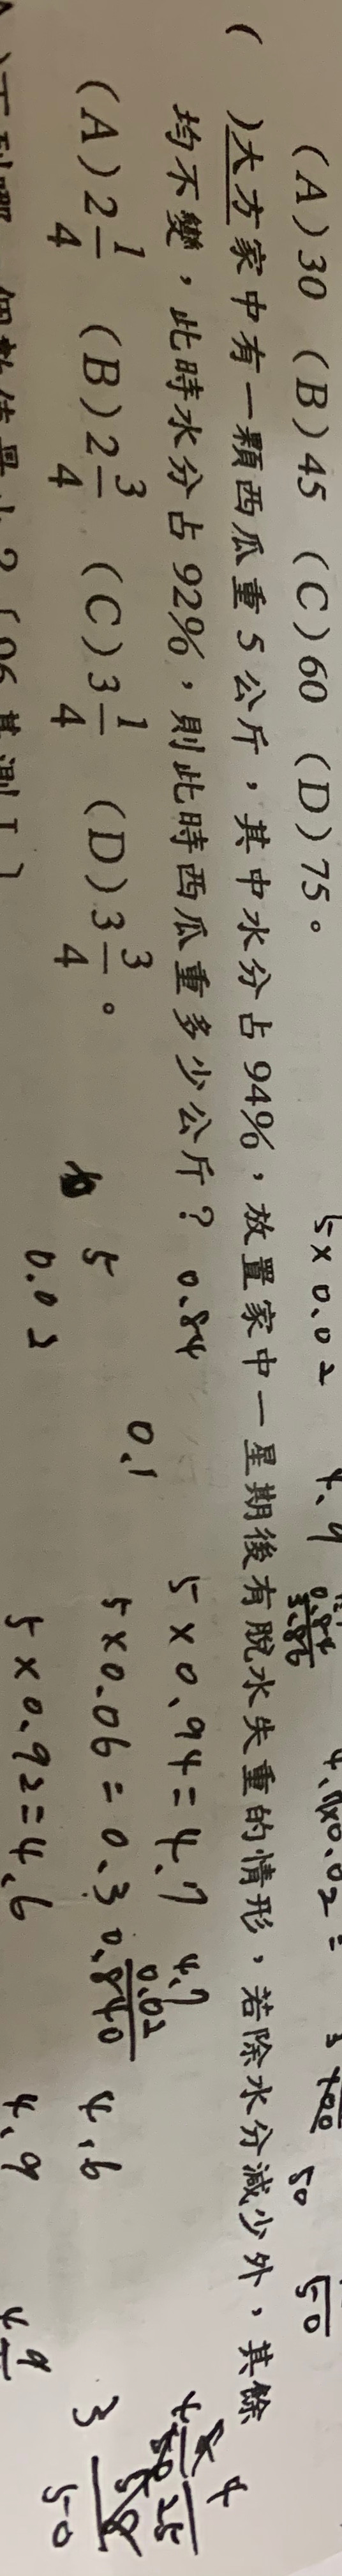 (A)30 (B)45 (C)60 (D)75。
( )大方家中有一顆西瓜重5公斤，其中水分占94%，放置家中一星期後有脫水失重的情形，若除水分減少外，其餘
均不變，此時水分占92%，則此時西瓜重多少公斤？
(A)2 1/4 (B)2 3/4 (C)3 1/4 (D)3 3/4。
5×0.02
4.9
0.84
5×0.94=4.7
4.7
0.02
0.1
5×0.06=0.3
0.840
4.6
5
0.02
5×0.92=4.6
4.9
50
50
3
50